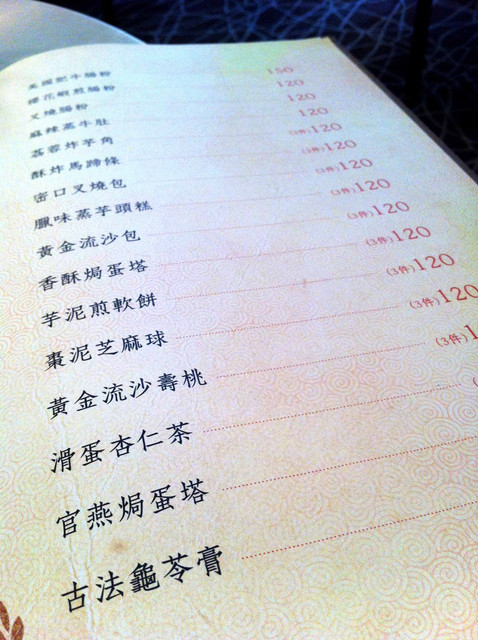 美國肥牛腸粉 150
櫻花蝦煎腸粉 120
叉燒腸粉 120
麻辣蒸牛肚 120
荔蓉炸芋角 (3件)120
酥炸馬蹄條 (3件)120
密口叉燒包 (3件)120
臘味蒸芋頭糕 (3件)120
黃金流沙包 (3件)120
香酥焗蛋塔 (3件)120
芋泥煎軟餅 (3件)120
棗泥芝麻球 (3件)120
黃金流沙壽桃 (3件)1
滑蛋杏仁茶
官燕焗蛋塔
古法龜苓膏